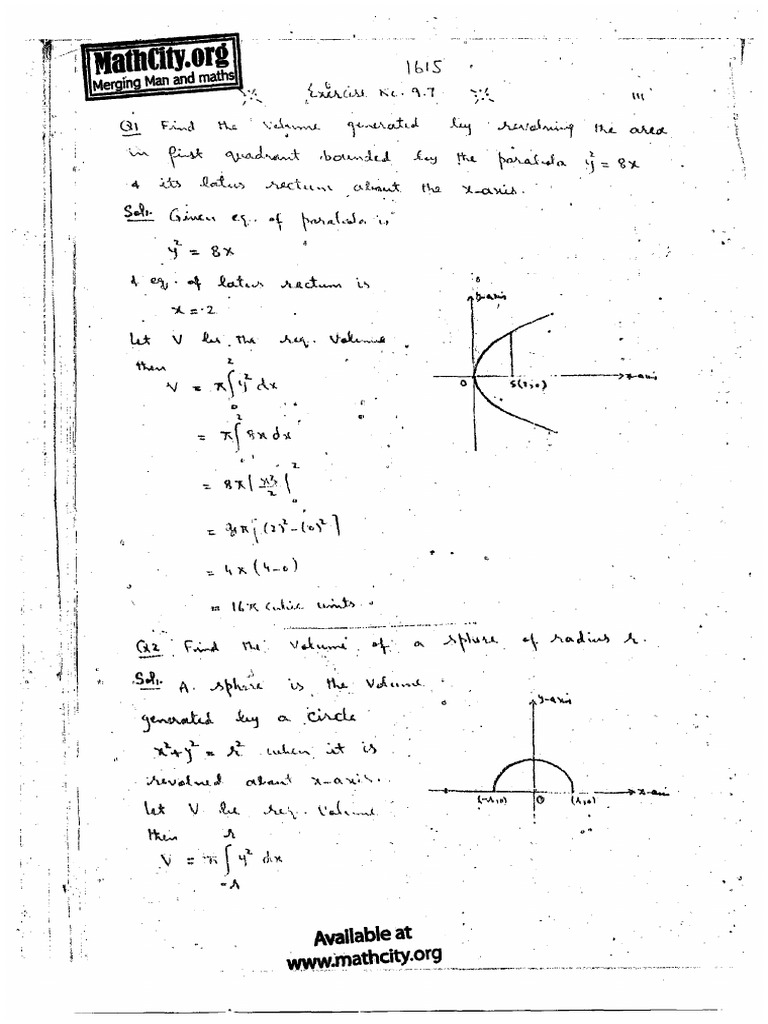 MathCity.org
Merging Man and maths
1615
Exercise No. 9.7
111
Q1 Find the volume generated by revolving the area
in first quadrant bounded by the parabola y² = 8x
& its latus rectum about the x-axis.
Sol:. Given eq. of parabola is
y² = 8x
& eq. of latus rectum is
x = 2
Let V be the req. Volume
then
V = π∫₀² y² dx
= π∫₀² 8x dx
= 8π | x²/2 |₀²
= 4π [(2)² - (0)²]
= 4π (4-0)
= 16π cubic units.
y-axis
O
S(2,0)
x-axis
Q2 Find the volume of a sphere of radius r.
Sol:. A sphere is the volume
generated by a circle
x² + y² = r² when it is
revolved about x-axis.
Let V be req. Volume
then
V = π∫₋ᵣʳ y² dx
y-axis
(-r,0)
O
(r,0)
x-axi
Available at
www.mathcity.org